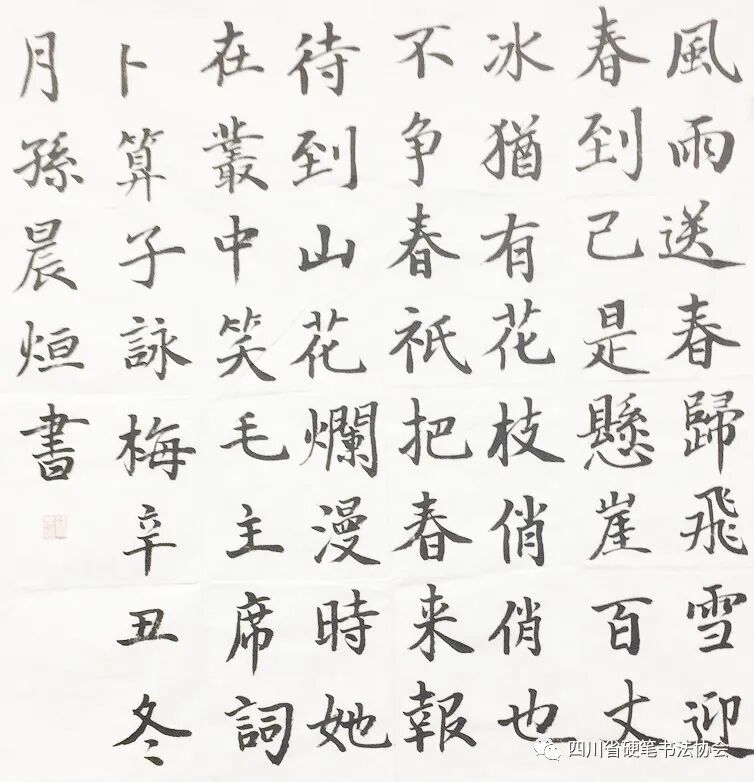 風雨送春歸飛雪迎
春到已是懸崖百丈
冰猶有花枝俏俏也
不争春祇把春来報
待到山花爛漫時她
在叢中笑毛主席詞
卜算子詠梅辛丑冬
月孫晨烜書
四川省硬笔书法协会